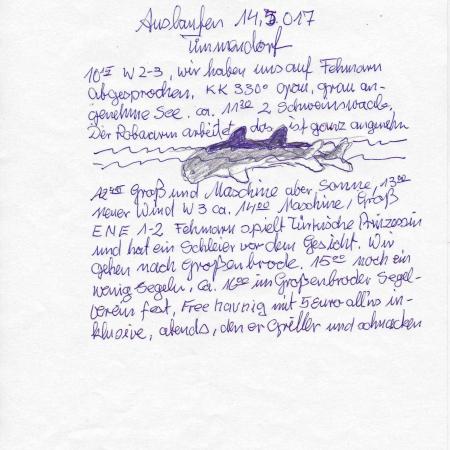 Auslaufen 14.5.017
Timmendorf
10 W 2-3, wir haben uns auf Fehmarn
abgesprochen. KK 330° grau, grau an-
genehme See. ca. 11 30 2 Schweinswale,
Der Roboarm arbeitet, das ist ganz angenehm
12 Groß und Maschine aber Sonne, 13 00
neuer Wind W 3 ca. 14 00 Maschine / Groß
ENE 1-2 Fehmarn spielt Türkische Prinzessin
und hat ein Schleier vor dem Gesicht. Wir
gehen nach Großenbrode. 15 00 noch ein
wenig Segeln, ca. 16 00 im Großenbroder Segel-
verein fest, Free mit 5 Euro all's in-
klusive, abends, den er Griller und schnacken